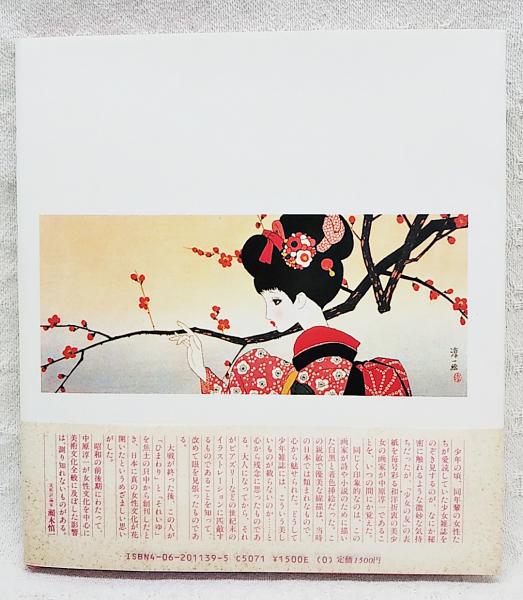 淳一繪
少年の頃、同年輩の女性た
ちが愛読していた少女雑誌を
のぞき見するのが、なにか秘
密に触れるような微妙な気持
ちだった。「少女の友」の表
紙を毎号彩る和洋折衷の美少
女の画家が中原淳一であるこ
とを、いつの間にか覚えた。
同じく印象的なのは、この
画家が詩や小説のために描い
た白黒と着色挿絵だった。こ
の鋭敏で優美な線描は、当時
の日本では類まれなもので、
心から魅せられた。どうして
少年雑誌には、こういう美し
いものが載らないのかー と
心から残念に思ったものであ
る。大人になってから、それ
がビアズリーなどの世紀末の
イラストレーションに匹敵す
るものであることを知って、
改めて眼を見張ったものであ
る。
大戦が終った後、この人が
「ひまわり」と「それいゆ」
を焦土の只中から創刊したと
き、日本に真の女性文化が花
開いたというめざましい思い
がした。
昭和の前後期にわたって、
中原淳一が女性文化を中心に
美術文化全般に及ぼした影響
は、測り知れないものがある。
美術評論家 瀬木慎一
ISBN4-06-201139-5 C5071 ¥1500E (0) 定価1500円